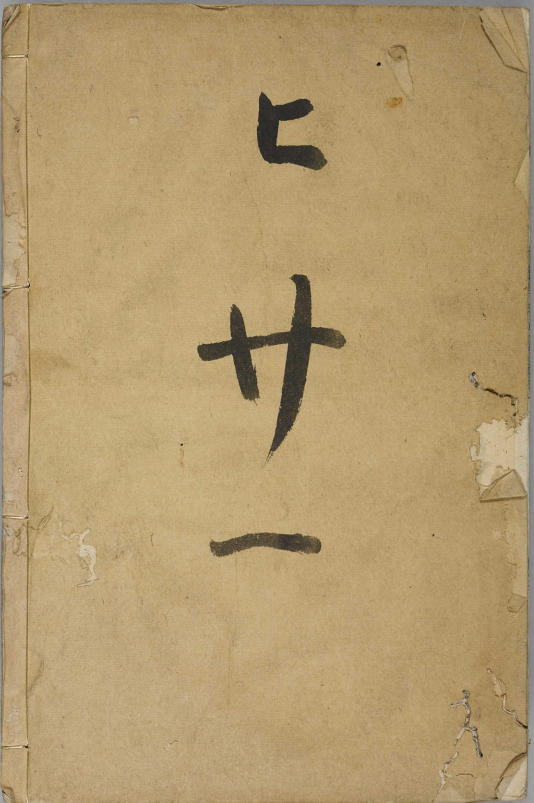 ヒサ一